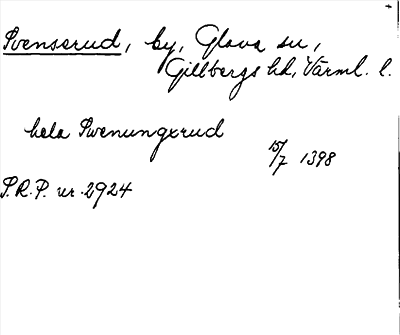 Svenserud, by, Glava sn,
Gillbergs hd, Värml. l.
hela Swenungxrud
15/7 1398
S.R.P. nr. 2924